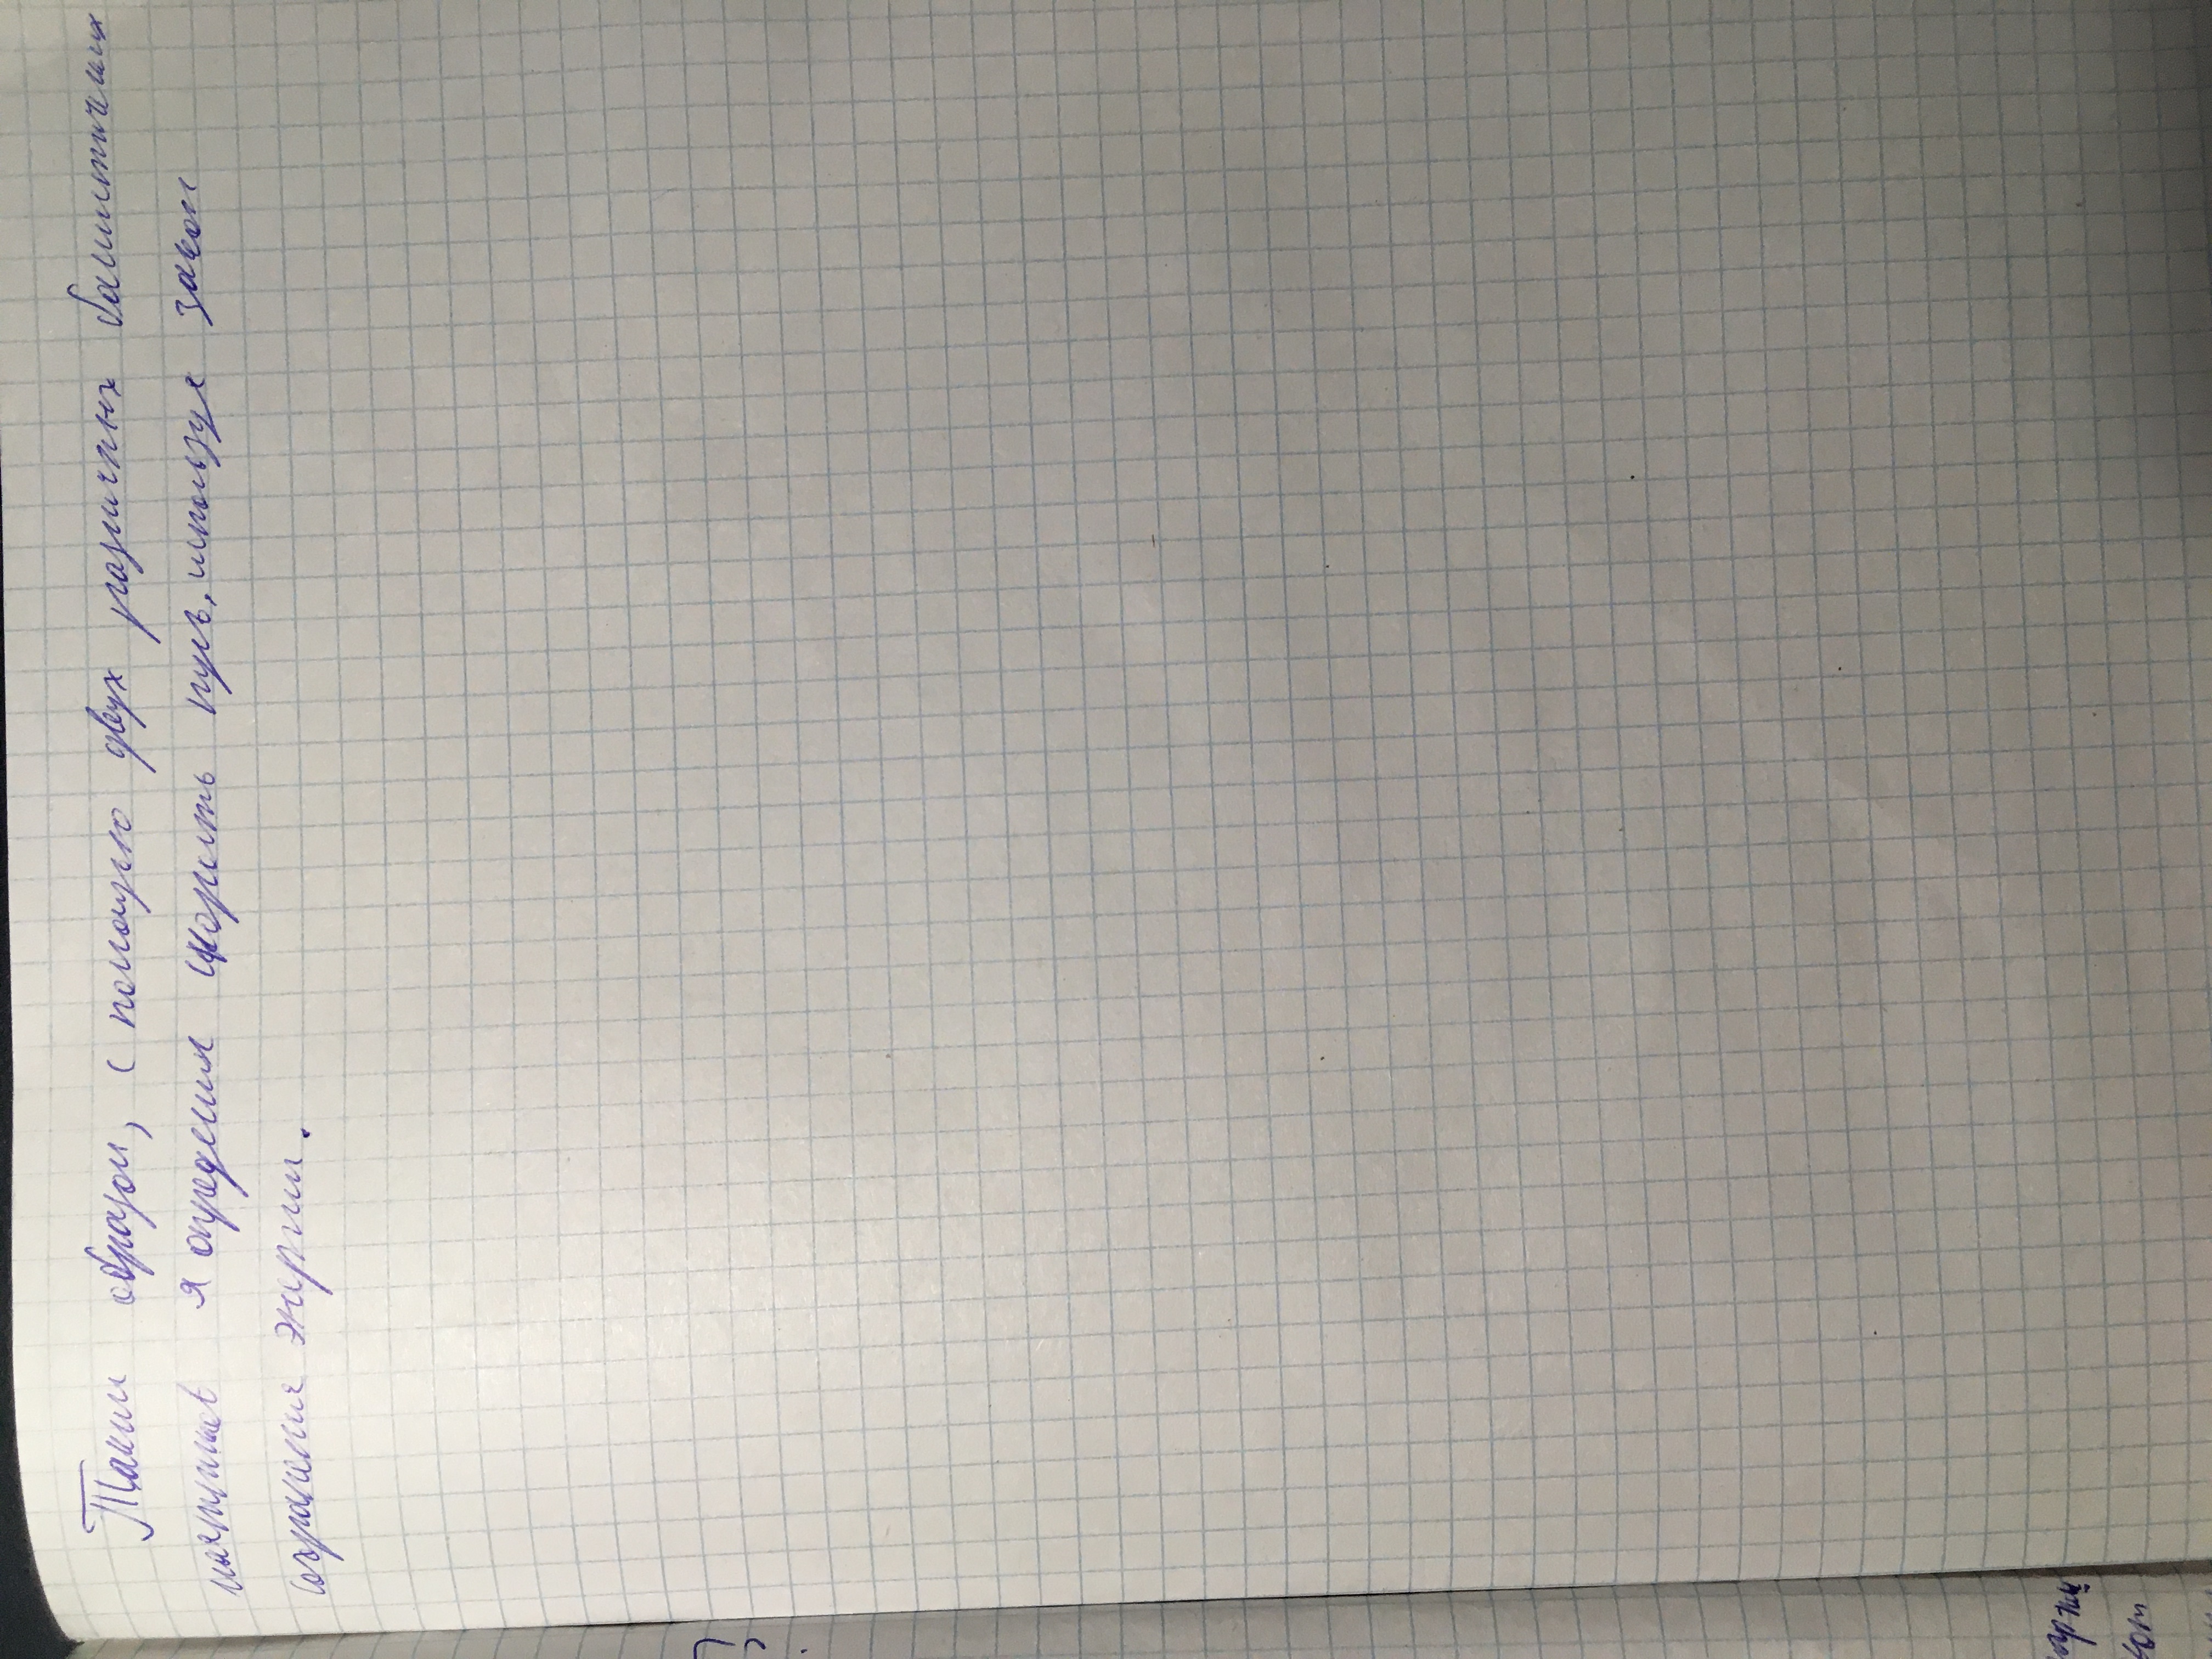 Таким образом, с помощью двух различных баллистических
маятников я определил скорость пуль, используя закон
сохранения энергии.